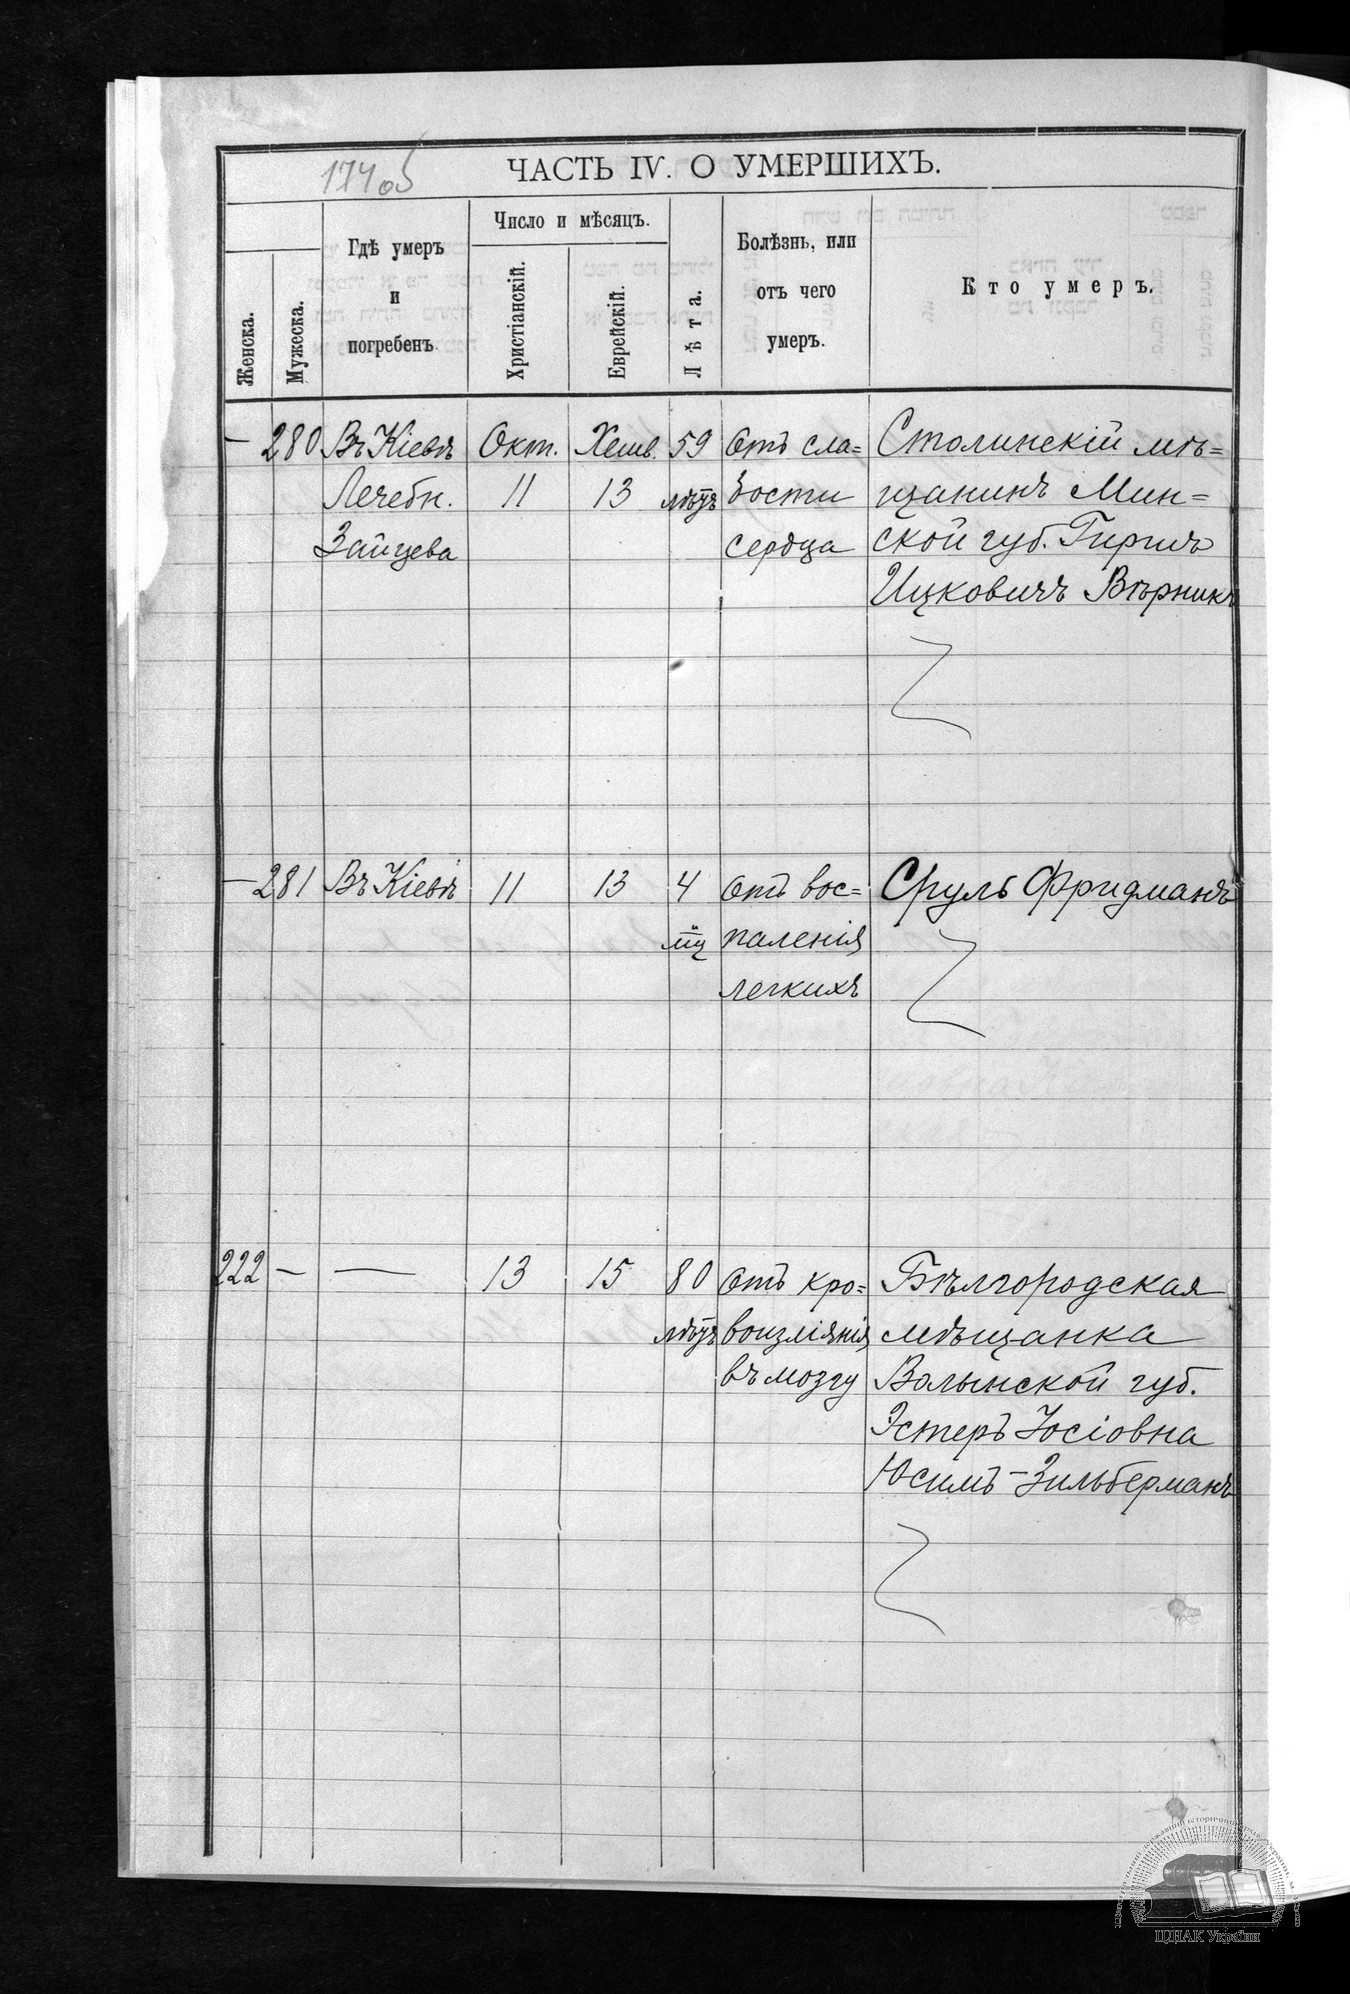 174об
ЧАСТЬ IV. О УМЕРШИХЪ.
Женска.
Мужеска.
Гдѣ умеръ
и
погребенъ
Число и мѣсяцъ.
Христіанскій.
Еврейскій.
Лѣта.
Болѣзнь, или
отъ чего
умеръ.
Кто умеръ.
— 280 Въ Кіевѣ Окт. Хешв. 59 Отъ сла= Столинскій мѣ=
Лечебн. 11 13 лѣтъ бости щанинъ Мин=
Зайцева сердца ской губ. Гиршъ
Ицковичъ Вѣрникъ
— 281 Въ Кіевѣ 11 13 4 Отъ вос= Сруль Фридманъ
мц паленія
легкихъ
222 — — 13 15 80 Отъ кро= Бѣлгородская
лѣтъ воизліянія мѣщанка
въ мозгу Волынской губ.
Эстеръ Іосіовна
Юсимъ-Зильберманъ
ЦДІАК України